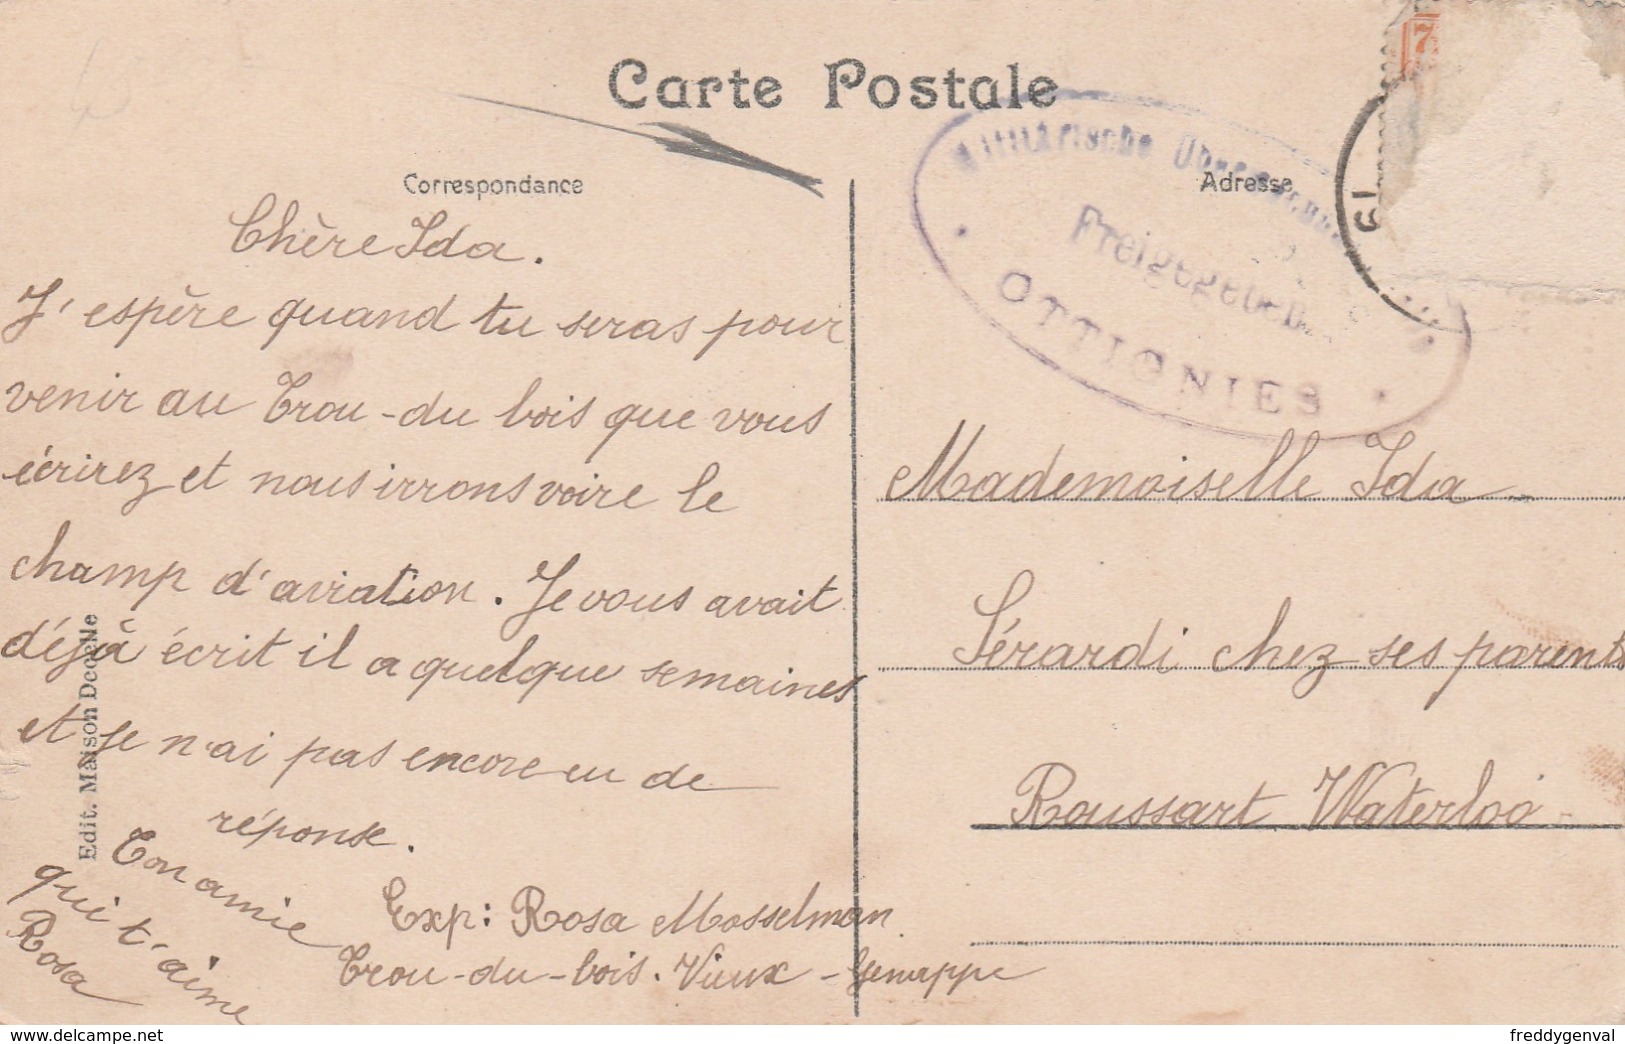 Carte Postale
Correspondance
Adresse
Militärische
Freigegeben
OTTIGNIES
7
19
Chère Ida.
J'espère quand tu seras pour
venir au Trou-du bois que vous
écrirez et nous irrons voire le
champ d'aviation. Je vous avait
déjà écrit il a quelque semaines
et je n'ai pas encore eu de
réponse.
Ton amie
qui t'aime
Rosa
Exp: Rosa Mosselman
Trou-du-bois. Vieux-Genappe
Mademoiselle Ida
Sérardi chez ses parents
Roussart Waterloo
Edit. Maison Decelle
delcampe.net
freddygenval